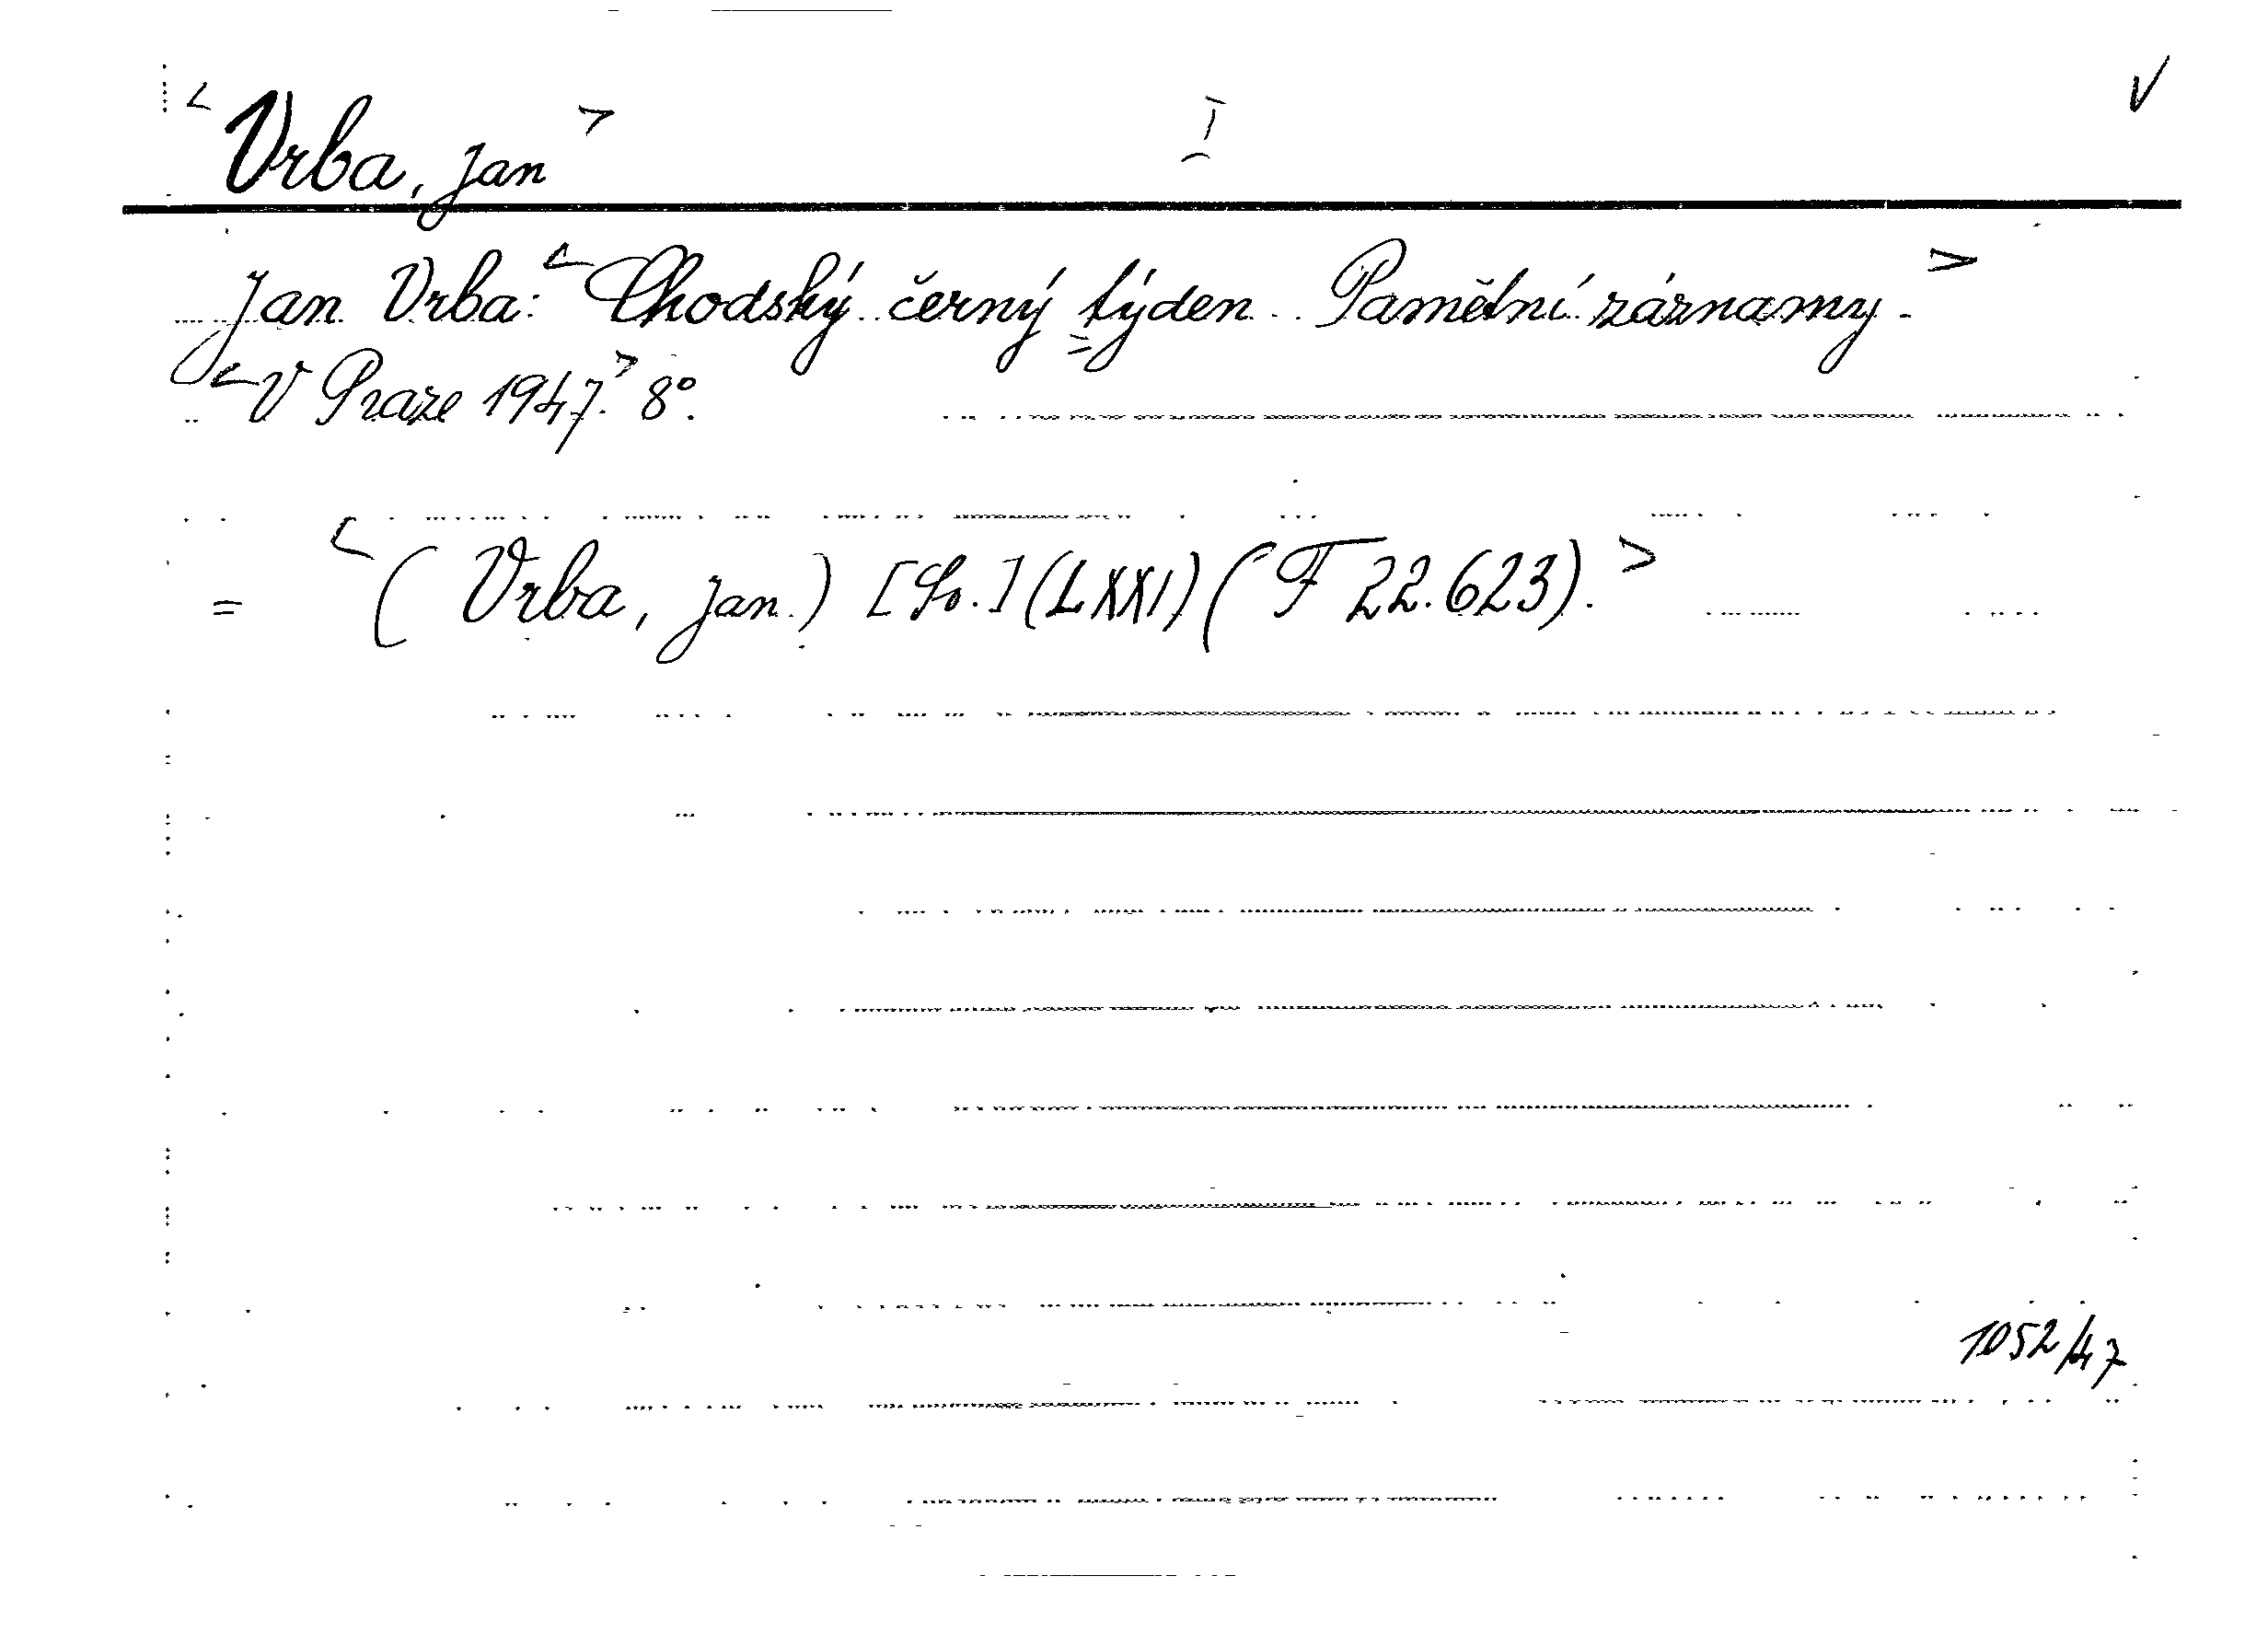 < Vrba, Jan > I V
Jan Vrba: < Chodský černý týden. Pamětní záznamy. >
< V Praze 1947. > 8°.
= < (Vrba, Jan.) [Sv.] (LXXI) (F 22.623). >
1052/47